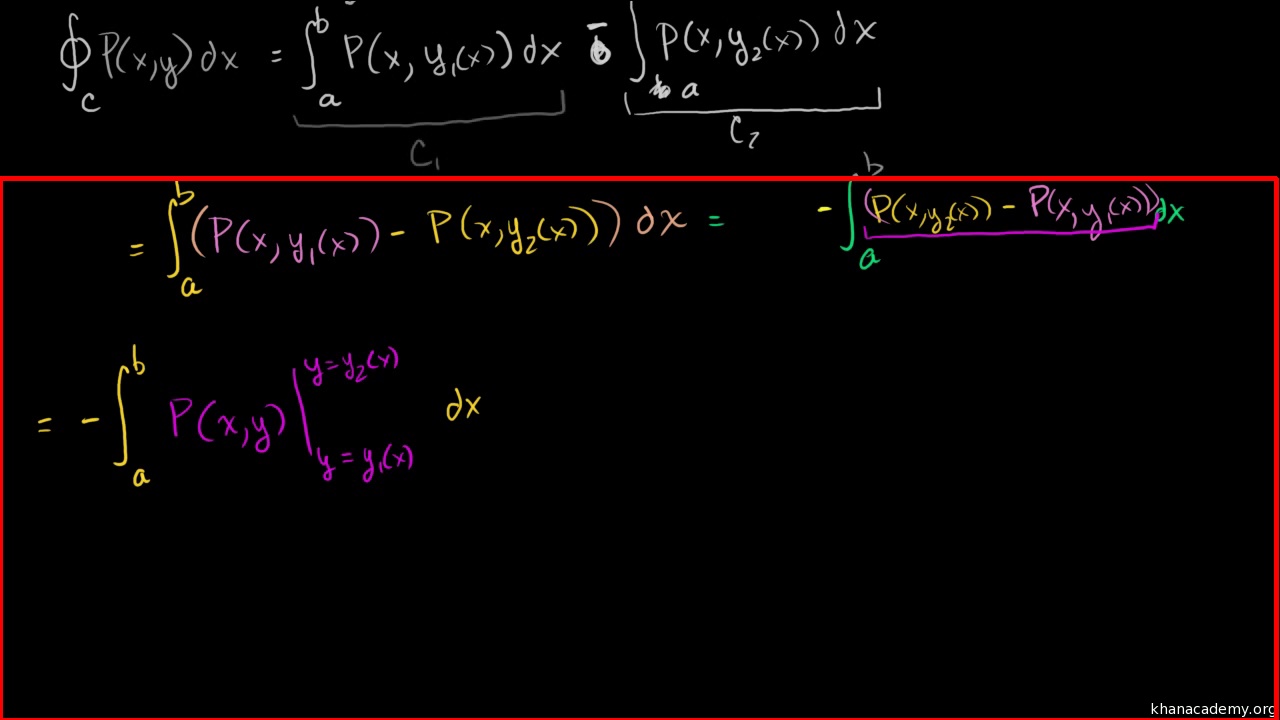 ∮_C P(x,y)dx = ∫_a^b P(x, y₁(x))dx - ∫_a P(x,y₂(x))dx
C₁ C₂
= ∫_a^b (P(x,y₁(x)) - P(x,y₂(x))) dx = - ∫_a^b (P(x,y₂(x)) - P(x,y₁(x)))dx
= - ∫_a^b P(x,y) |_{y=y₁(x)}^{y=y₂(x)} dx
khanacademy.org